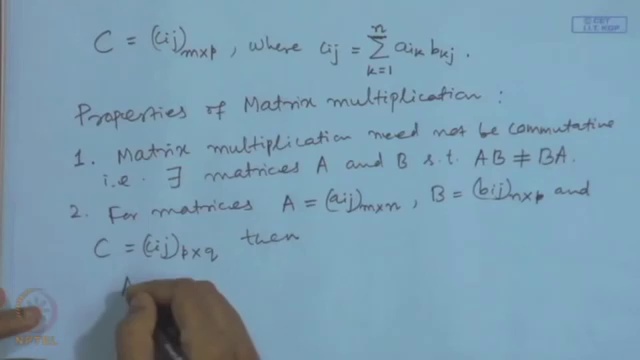 C = (cij)m×p, where cij = n∑k=1 aik bkj.
Properties of Matrix multiplication :
1. Matrix multiplication need not be commutative
i.e. ∃ matrices A and B s.t. AB ≠ BA.
2. For matrices A = (aij)m×n, B = (bij)n×p and
C = (cij)p×q then
A
© CET
I.I.T. KGP
NPTEL